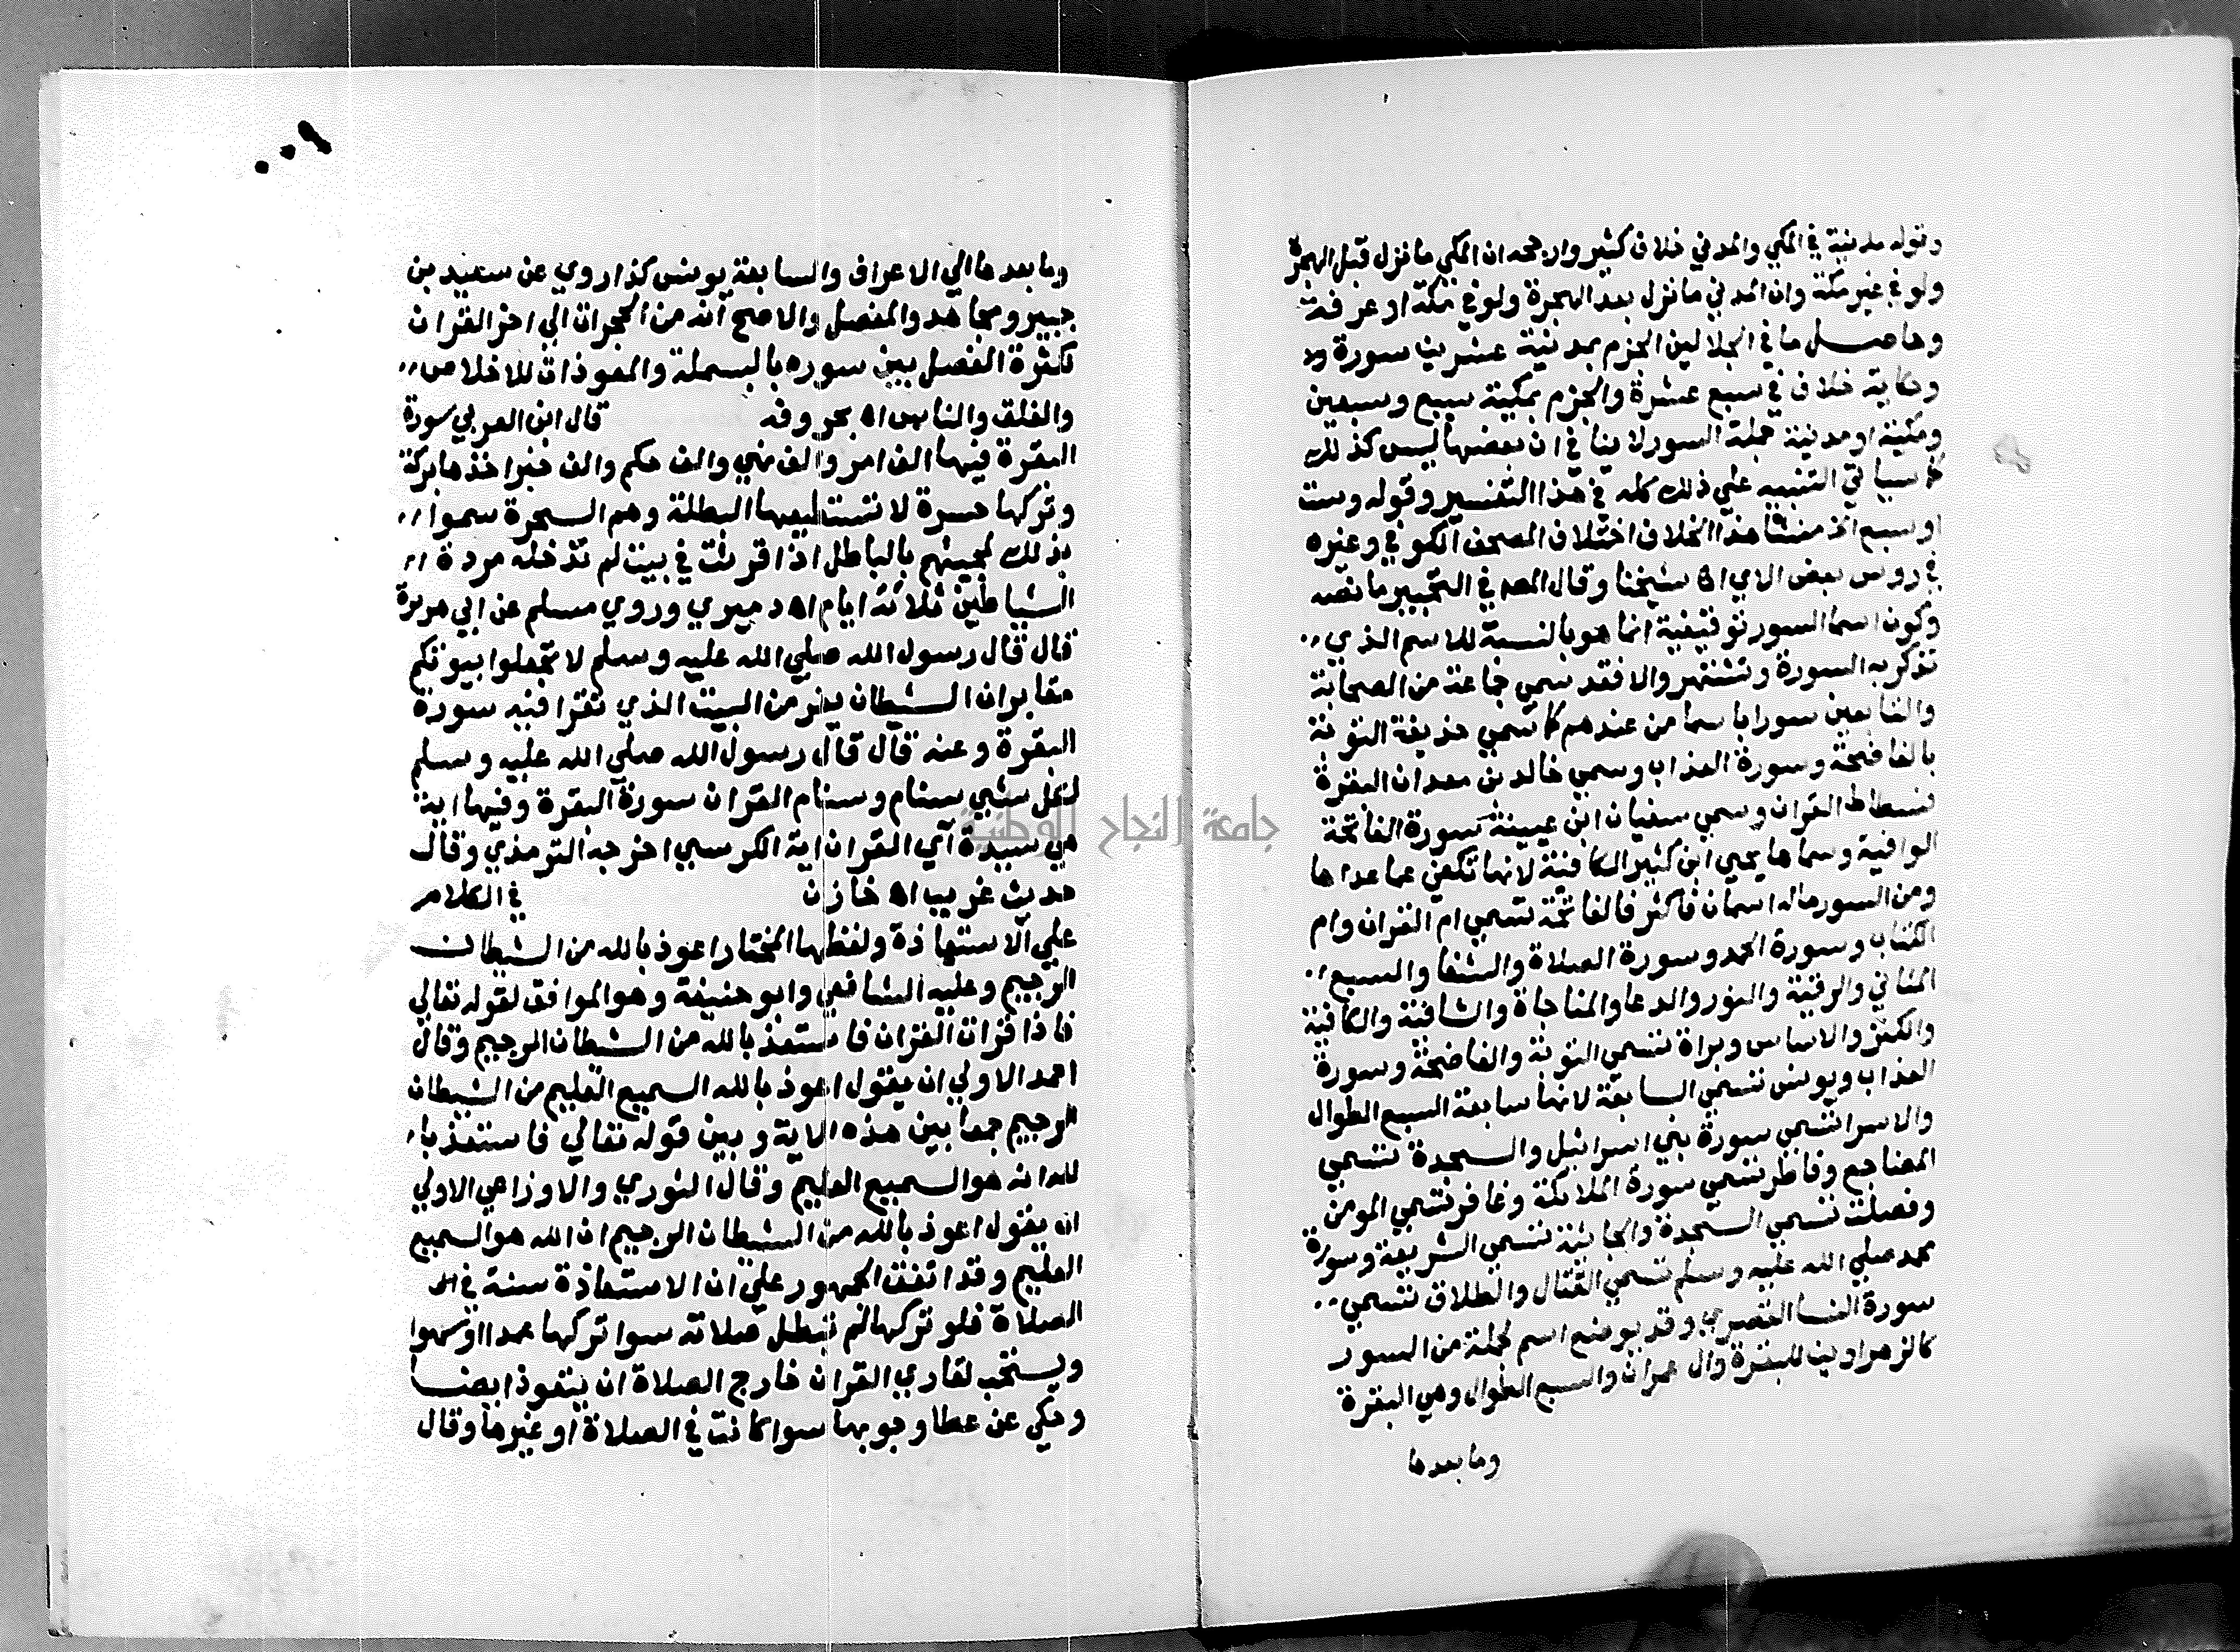 وقوله مدنية في المكي والمدني خلاف كثير وارجحه ان المكي ما نزل قبل الهجرة
ولو في غير مكة وان المدني ما نزل بعد الهجرة ولو في مكة او عرفة
وحاصل ما في الجلالين الجزم بمدنية عشرين سورة ولا
وحكاية خلاف في سبع عشرة والجزم بمكية سبع وسبعين
ومكية او مدنية جملة السور لا ينافي ان بعضها ليس كذلك
كما سياتي التنبيه علي ذلك كله في هذا التفسير وقوله وست
او سبع الخ منشا هذا الخلاف اختلاف المصحف الكوفي وغيره
في روس بعض الاي اه شيخنا وقال المص في التحبير ما نصه
وكون اسما السور توقيفية انما هو بالنسبة للاسم الذي
تذكر به السورة وتشتهر والا فقد سمي جماعة من الصحابة
والتابعين سورا باسما من عندهم كما سمي حذيفة التوبة
بالفاضحة وسورة العذاب وسمي خالد بن معدان البقرة
فسطاط القران وسمي سفيان ابن عيينة سورة الفاتحة
الوافية وسماها يحيي ابن كثير الكافية لانها تكفي عما عداها
ومن السور ماله اسمان فاكثر فالفاتحة تسمي ام القران وام
الكتاب وسورة الحمد وسورة الصلاة والشفا والسبع
المثاني والرقية والنور والدعا والمناجاة والشافية والكافية
والكنز والاساس وبراة تسمي التوبة والفاضحة وسورة
العذاب ويونس تسمي السابعة لانها سابعة السبع الطوال
والاسرا تسمي سورة بني اسرائيل والسجدة تسمي
المضاجع وفاطر تسمي سورة الملائكة وغافر تسمي المومن
وفصلت تسمي السجدة والجاثية تسمي الشريعة وسورة
محمد صلي الله عليه وسلم تسمي القتال والطلاق تسمي
سورة النسا القصري وقد يوضع اسم لجملة من السور
كالزهراوين للبقرة وال عمران والسبع الطوال وهي البقرة
وما بعدها
وما بعدها الي الاعراف والسابعة يونس كذا روي عن سعيد بن
جبير ومجاهد والمفصل والاصح انه من الحجرات الي اخر القران
لكثرة الفصل بين سوره بالبسملة والمعوذات للاخلاص
والفلق والناس اه بحروفه قال ابن العربي سورة
البقرة فيها الف امر والف نهي والف حكم والف خبر اخذها بركة
وتركها حسرة لا تستطيعها البطلة وهم السحرة سموا
بذلك لمجيئهم بالباطل اذا قرئت في بيت لم تدخله مردة
الشياطين ثلاثة ايام اه دميري وروي مسلم عن ابي هريرة
قال قال رسول الله صلي الله عليه وسلم لا تجعلوا بيوتكم
مقابر ان الشيطان يفر من البيت الذي تقرا فيه سورة
البقرة وعنه قال قال رسول الله صلي الله عليه وسلم
لكل شي سنام وسنام القران سورة البقرة وفيها اية
هي سيدة آي القران اية الكرسي اخرجه الترمذي وقال
حديث غريب اه خازن في الكلام
علي الاستعاذة ولفظها المختار اعوذ بالله من الشيطان
الرجيم وعليه الشافعي وابو حنيفة وهو الموافق لقوله تعالي
فاذا قرات القران فاستعذ بالله من الشيطان الرجيم وقال
احمد الاولي ان يقول اعوذ بالله السميع العليم من الشيطان
الرجيم جمعا بين هذه الاية وبين قوله تعالي فاستعذ با
لله انه هو السميع العليم وقال الثوري والاوزاعي الاولي
ان يقول اعوذ بالله من الشيطان الرجيم ان الله هو السميع
العليم وقد اتفق الجمهور علي ان الاستعاذة سنة في ال
الصلاة فلو تركها لم تبطل صلاته سوا تركها عمدا او سهوا
ويستحب لقاري القران خارج الصلاة ان يتعوذ ايضا
وحكي عن عطا وجوبها سوا كانت في الصلاة او غيرها وقال
جامعة النجاح الوطنية